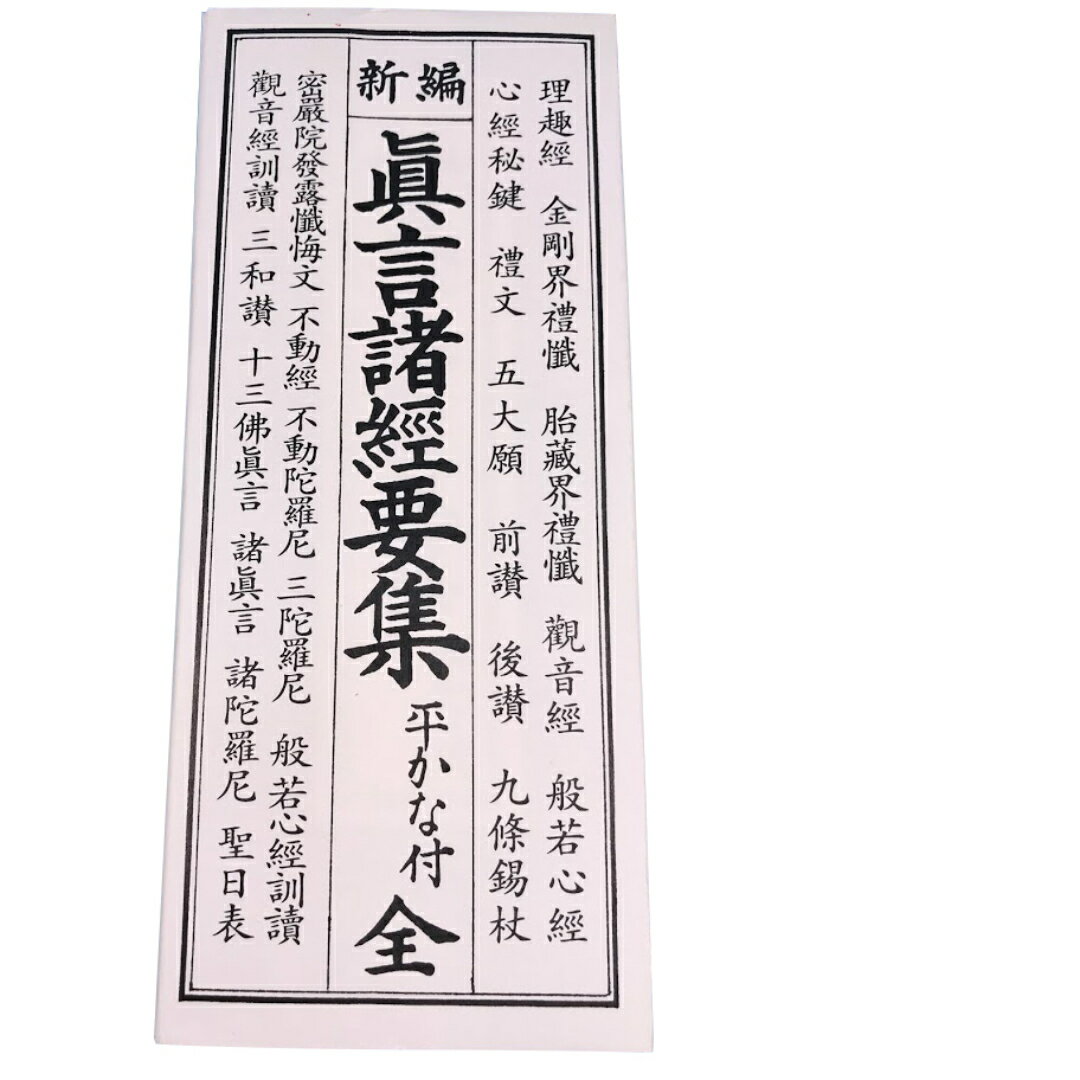 理趣經 金剛界禮懺 胎藏界禮懺 觀音經 般若心經
心經秘鍵 禮文 五大願 前讃 後讃 九條錫杖
新編
眞言諸經要集 平かな付 全
密嚴院發露懺悔文 不動經 不動陀羅尼 三陀羅尼 般若心經訓讀
觀音經訓讀 三和讃 十三佛眞言 諸眞言 諸陀羅尼 聖日表